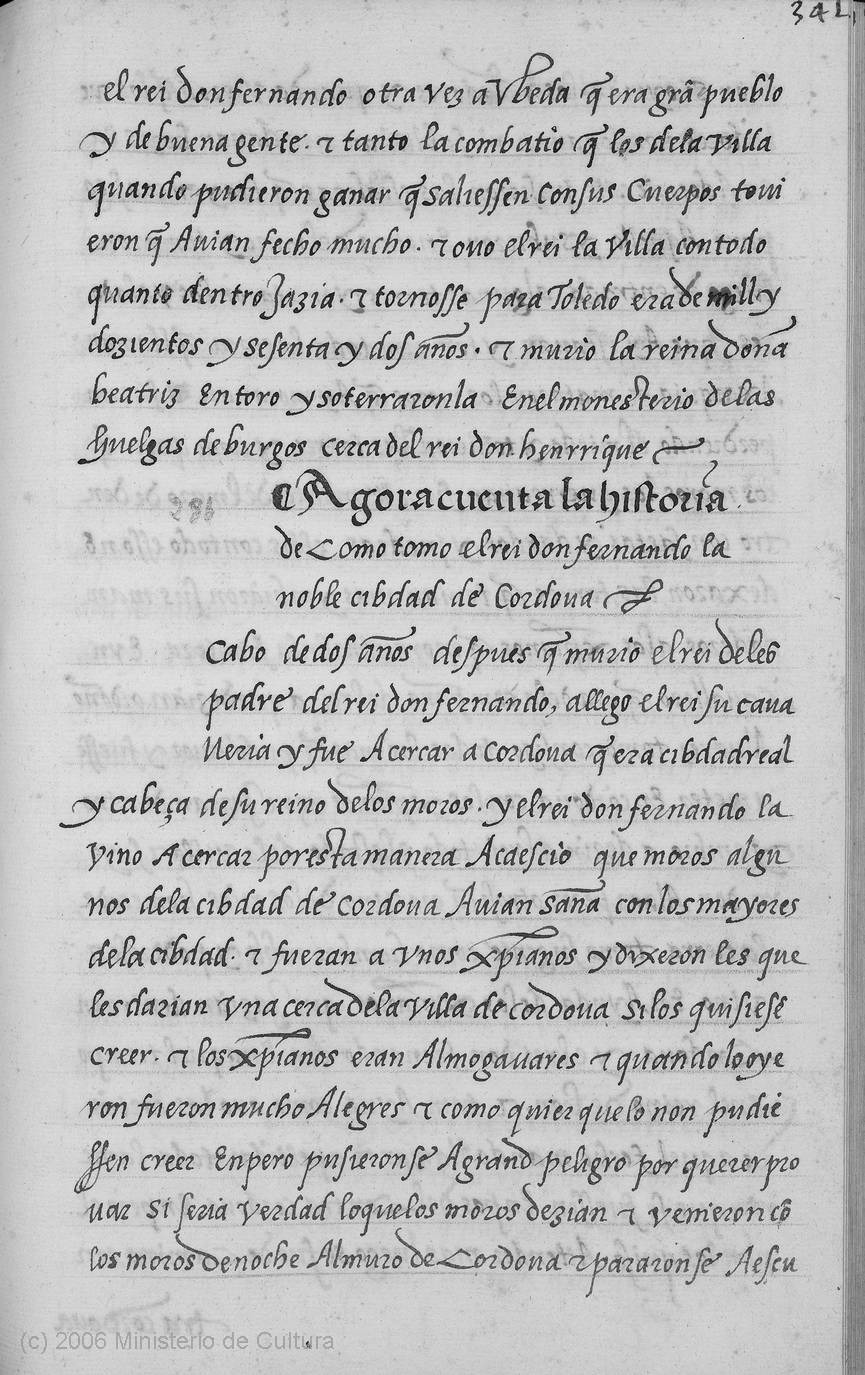 341
el rei don fernando otra vez a Vbeda q̃ era grã pueblo
y de buena gente · ⁊ tanto la combatio q̃ los dela villa
quando pudieron ganar q̃ saliessen con sus Cuerpos toui
eron q̃ Auian fecho mucho · ⁊ ouo el rei la villa con todo
quanto dentro Jazia · ⁊ tornosse para Toledo era de mill y
dozientos y sesenta y dos años · ⁊ murio la reina doña
beatriz En toro y soterraronla En el monesterio delas
Huelgas de burgos cerca del rei don henrrique
Agora cuenta la historia
de Como tomo el rei don fernando la
noble cibdad de Cordoua
286
Cabo de dos años despues q̃ murio el rei de leõ
padre del rei don fernando, allego el rei su caua
lleria y fue A cercar a cordoua q̃ era cibdad real
y cabeça de su reino delos moros · y el rei don fernando la
vino A cercar por esta manera Acaescio que moros algu
nos dela cibdad de cordoua Auian saña con los mayores
dela cibdad · ⁊ fueran a vnos xp̃ianos y dixeron les que
les darian vna cerca dela villa de cordoua si los quisiesẽ
creer · ⁊ los xp̃ianos eran Almogauares ⁊ quando lo oye
ron fueron mucho Alegres ⁊ como quier que lo non pudie
ssen creer Enpero pusieronse A grand peligro por querer pro
uar si seria verdad lo que los moros dezian ⁊ venieron cõ
los moros de noche Al muro de Cordoua ⁊ pararonse A escu
(c) 2006 Ministerio de Cultura